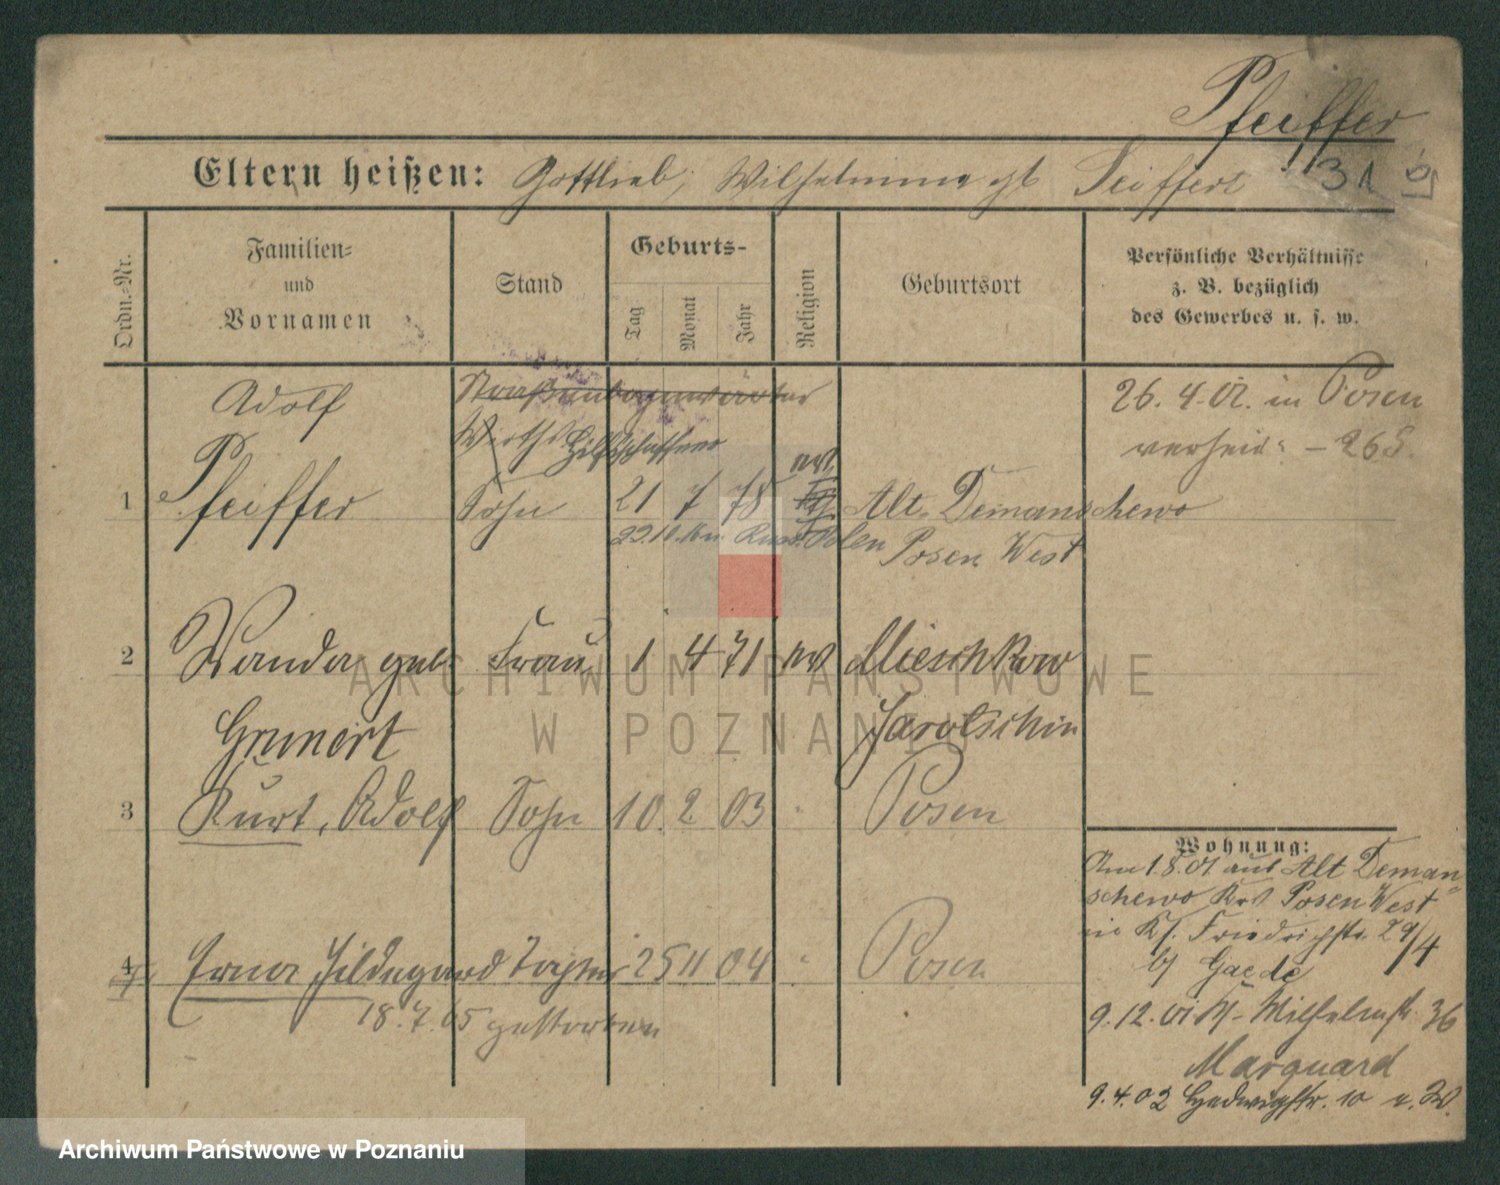 Pfeiffer
Eltern heißen: Gottlieb, Wilhelmine gb Seiffert 31
Ordn.-Nr.
Familien-
und
Vornamen
Stand
Geburts-
Tag
Monat
Jahr
Religion
Geburtsort
Persönliche Verhältnisse
z. B. bezüglich
des Gewerbes u. s. w.
Adolf
26. 4. 02. in Posen
Hilfsschaffner
verheir.
ev.
1 Pfeiffer Sohn 21 7 78 Alt Demanschewo
Posen West
2 Wanda geb. Frau 1 4 71 ev Mieschkow
Grunert Jarotschin
3 Kurt, Adolf Sohn 10. 2 03 " Posen
Wohnung:
Am 1.8.01 aus Alt Deman-
schewo Krs Posen West
in Friedrichstr. 29/4
b/ Gaede
4 Erna Hildegard Tochter 25 11 04 " Posen
18.7.05 gestorben
9.12.01 Wilhelmstr. 36
Marquard
9.4.02 Hedwigstr. 10
ARCHIWUM PAŃSTWOWE
W POZNANIU
Archiwum Państwowe w Poznaniu